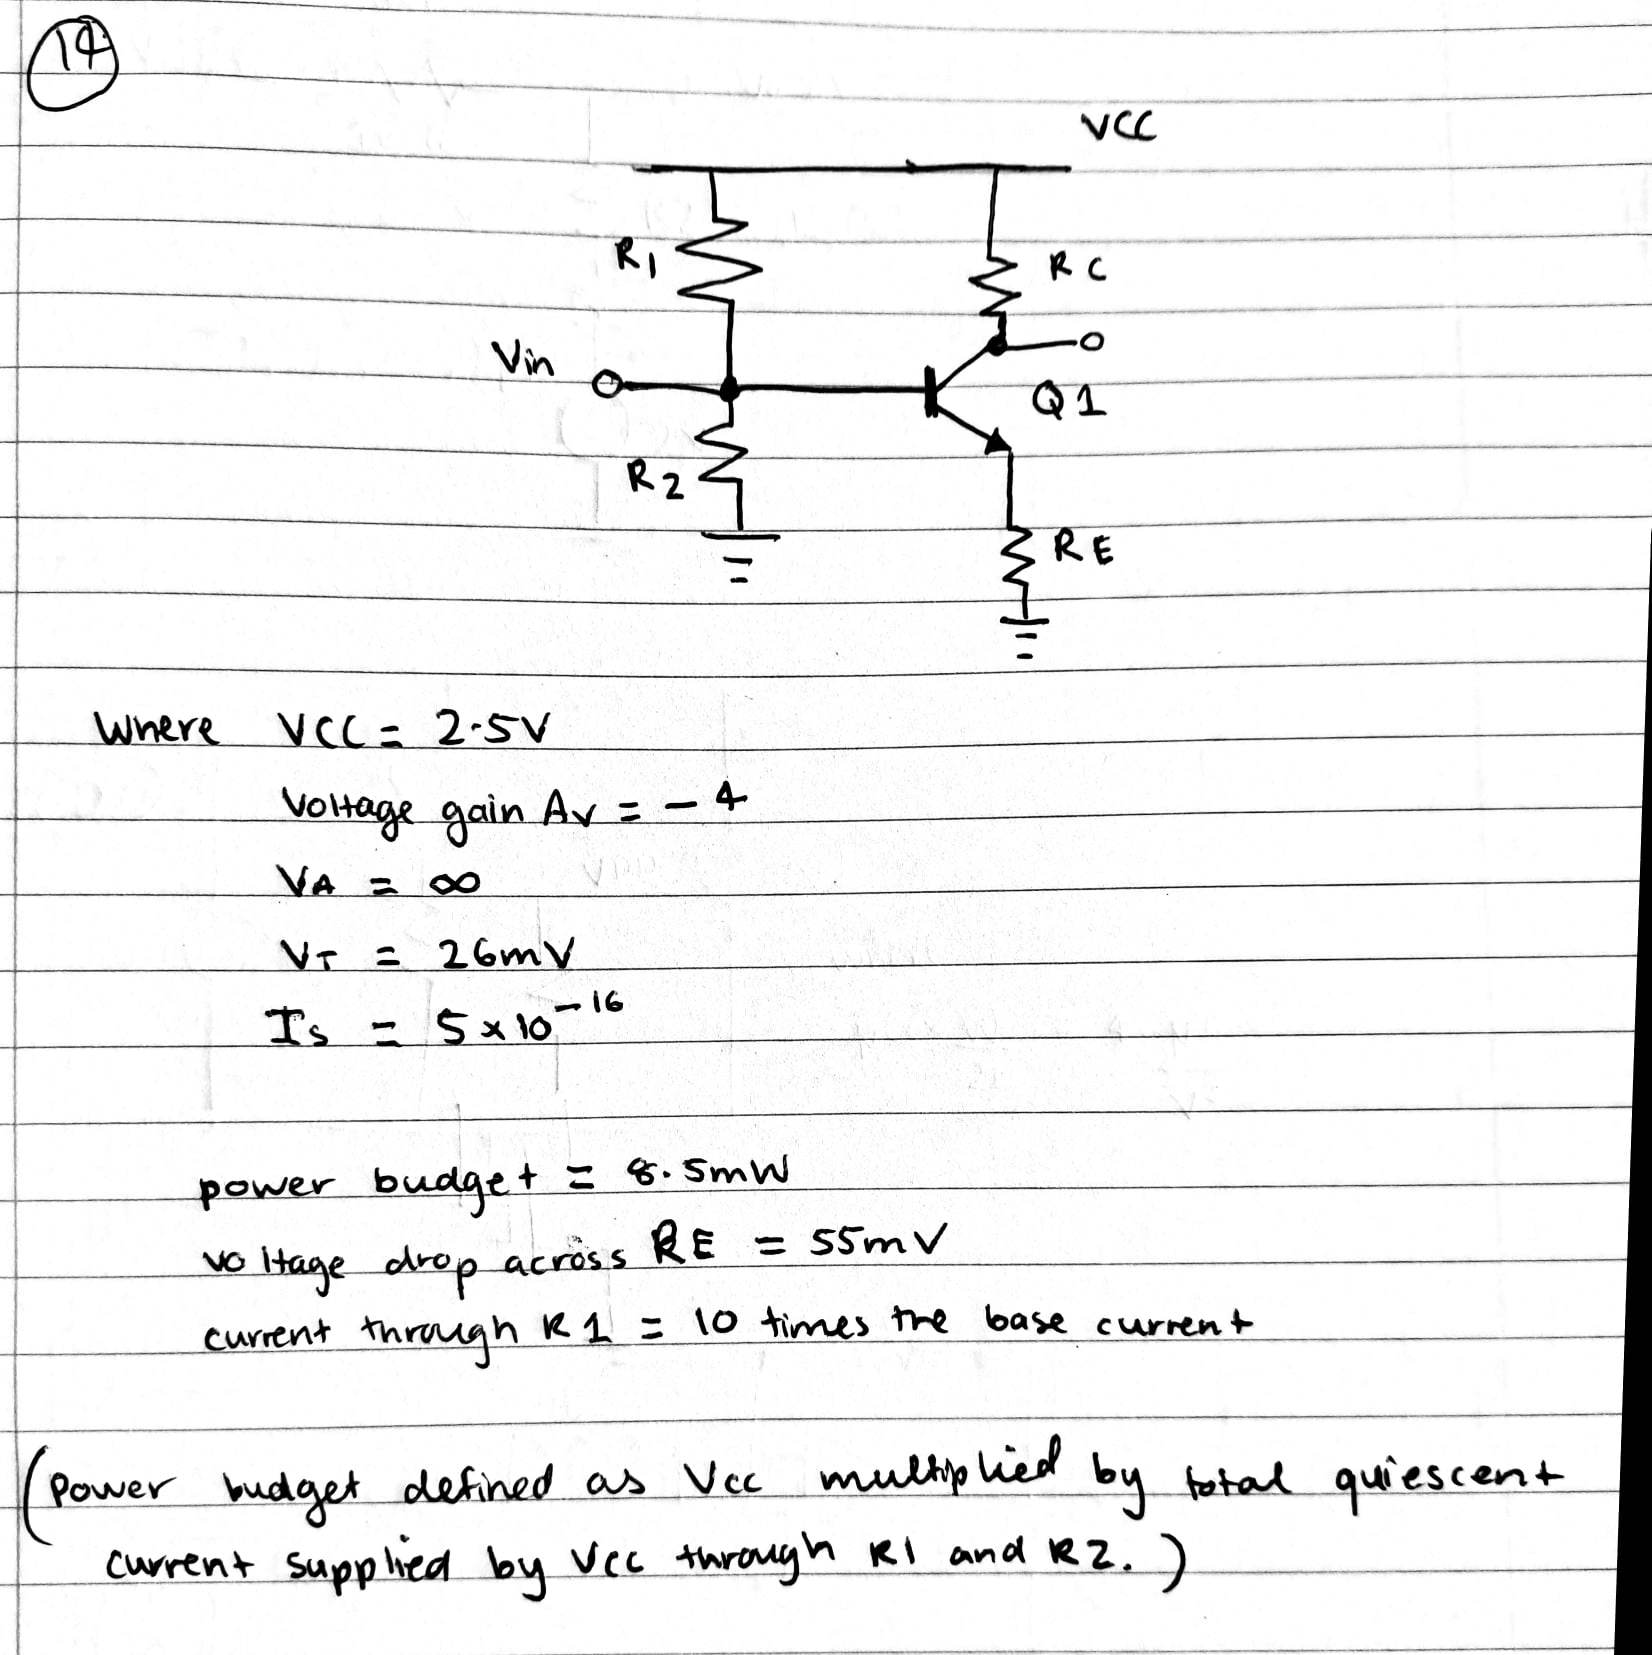 14
VCC
R1
RC
Vin
Q1
R2
RE
Where VCC = 2.5V
Voltage gain Av = - 4
VA = ∞
VT = 26mV
Is = 5 x 10^-16
power budget = 8.5mW
voltage drop across RE = 55mV
current through R1 = 10 times the base current
(Power budget defined as Vcc multiplied by total quiescent
current supplied by Vcc through R1 and R2.)